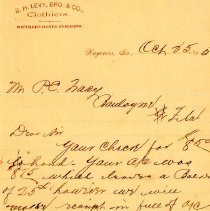 B. H. LEVY, BRO. & CO.,
Clothiers.
SOUTHERN HOTEL BUILDING.
Waycross, Ga., Oct 25
Mr P.C.
Fla
Dear Sir
Your Check for $8.00
to hand. Your a/c was
8.25 which leaves a Balance
of 25¢ however we will
receipt in full of a/c